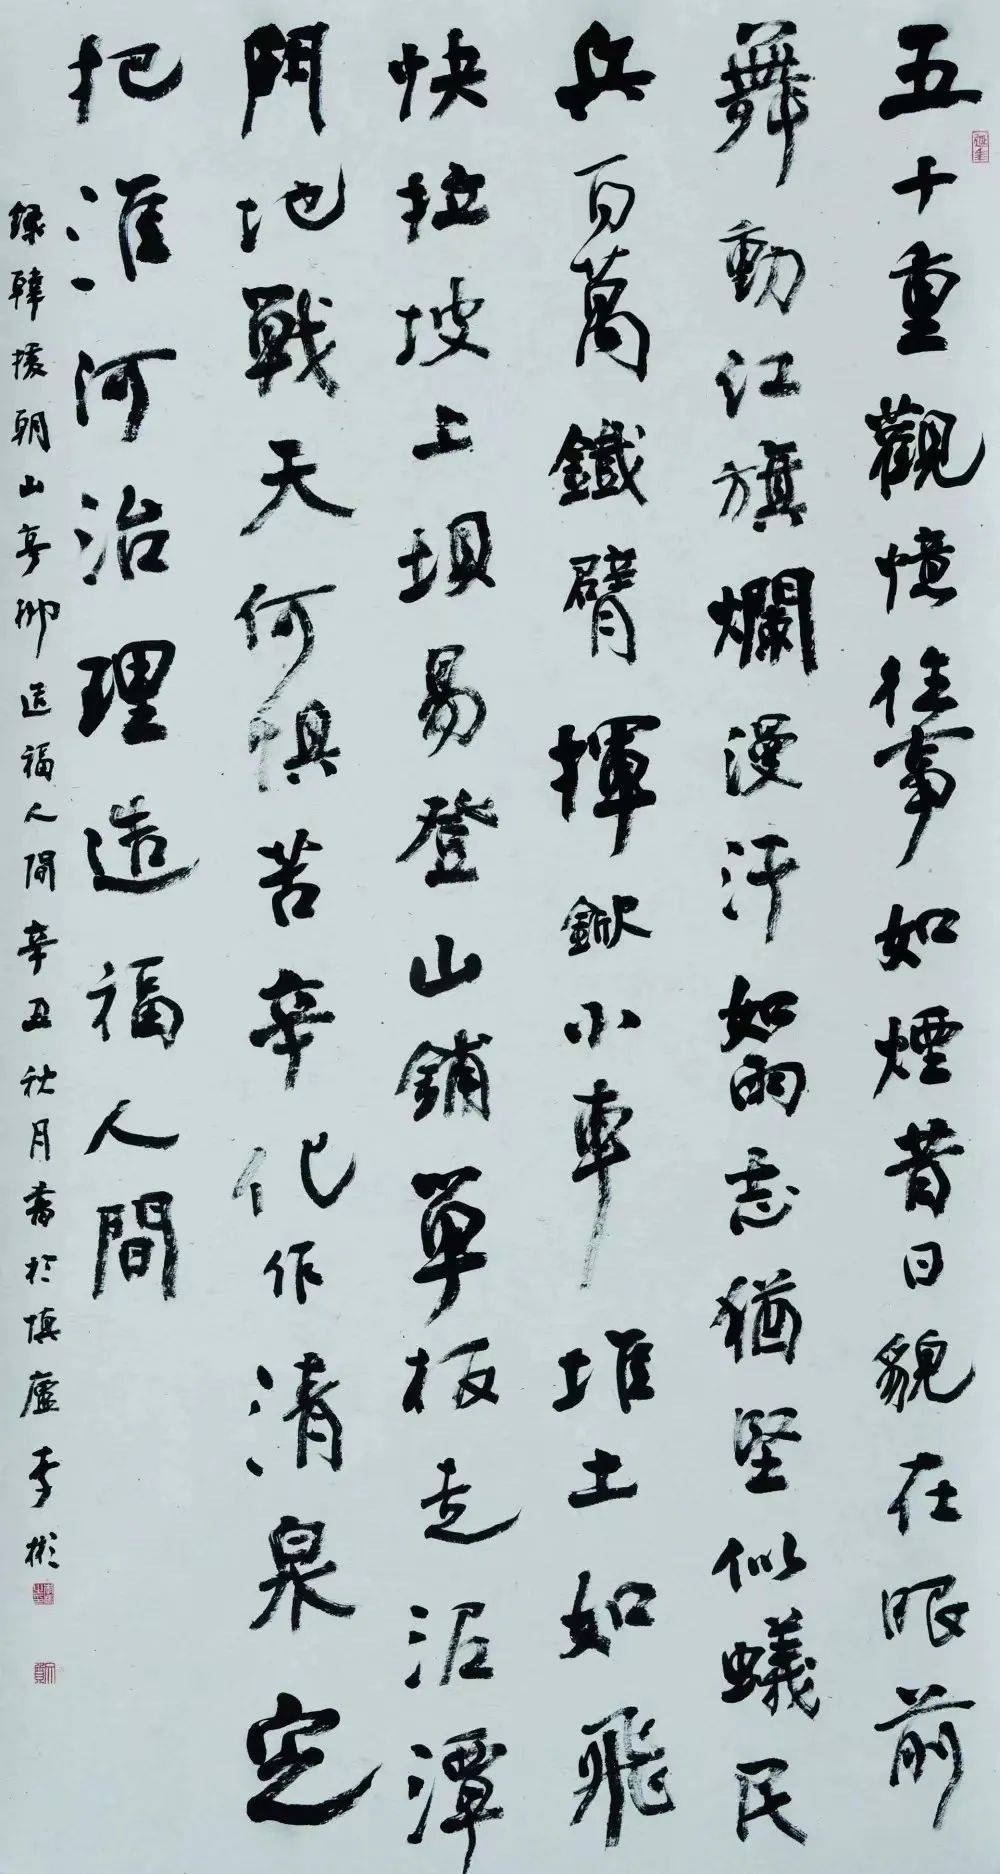 五十重觀憶往事如煙昔日貌在眼前
舞動江旗爛漫汗如雨志猶堅似蟻民
兵百萬鐵臂揮鍁小車堆土如飛
快拉坡上坝易登山鋪單板走泥潭
鬥地戰天何惧苦辛化作清泉定
把淮河治理造福人間
錄韓援朝山亭柳造福人間辛丑秋月書於慎廬李彬